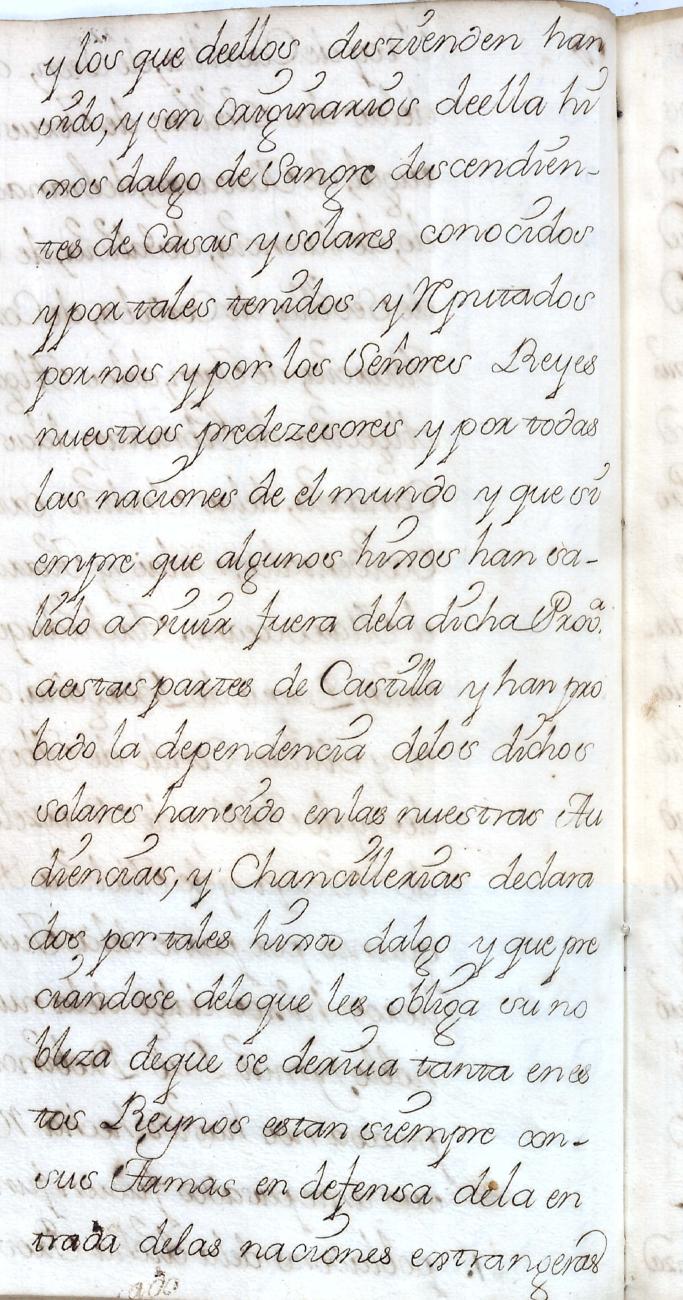 y los que deellos deszienden han
sido, y son Originarios deella hi
xos dalgo de Sangre descendien-
tes de Casas y solares conocidos
y por tales tenidos y Reputados
por nos y por los Señores Reyes
nuestros predezesores y por todas
las naciones de el mundo y que si
empre que algunos hixos han sa-
lido a viuir fuera dela dicha Prova.
a estas partes de Castilla y han pro
bado la dependencia delos dichos
solares han sido en las nuestras Au
diencias, y Chancillerias declara
dos por tales hixos dalgo y que pre
ciandose delo que les obliga su no
bleza de que se deriua tanta en es
tos Reynos estan siempre con-
sus Armas en defensa dela en
trada delas naciones extrangeras